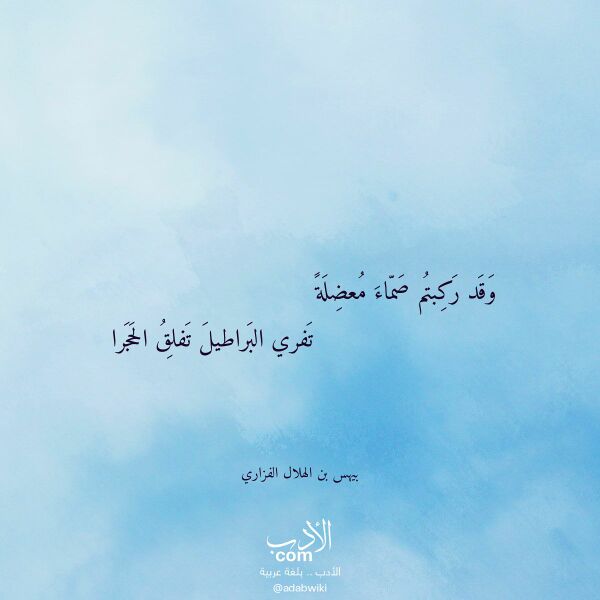 وَقَد رَكِبتُم صَمّاءَ مُعضِلَةً
تَفري البَراطيلَ تَفلِقُ الحَجَرا
بيهس بن الهلال الفزاري
الأدب
com
الأدب .. بلغة عربية
@adabwiki